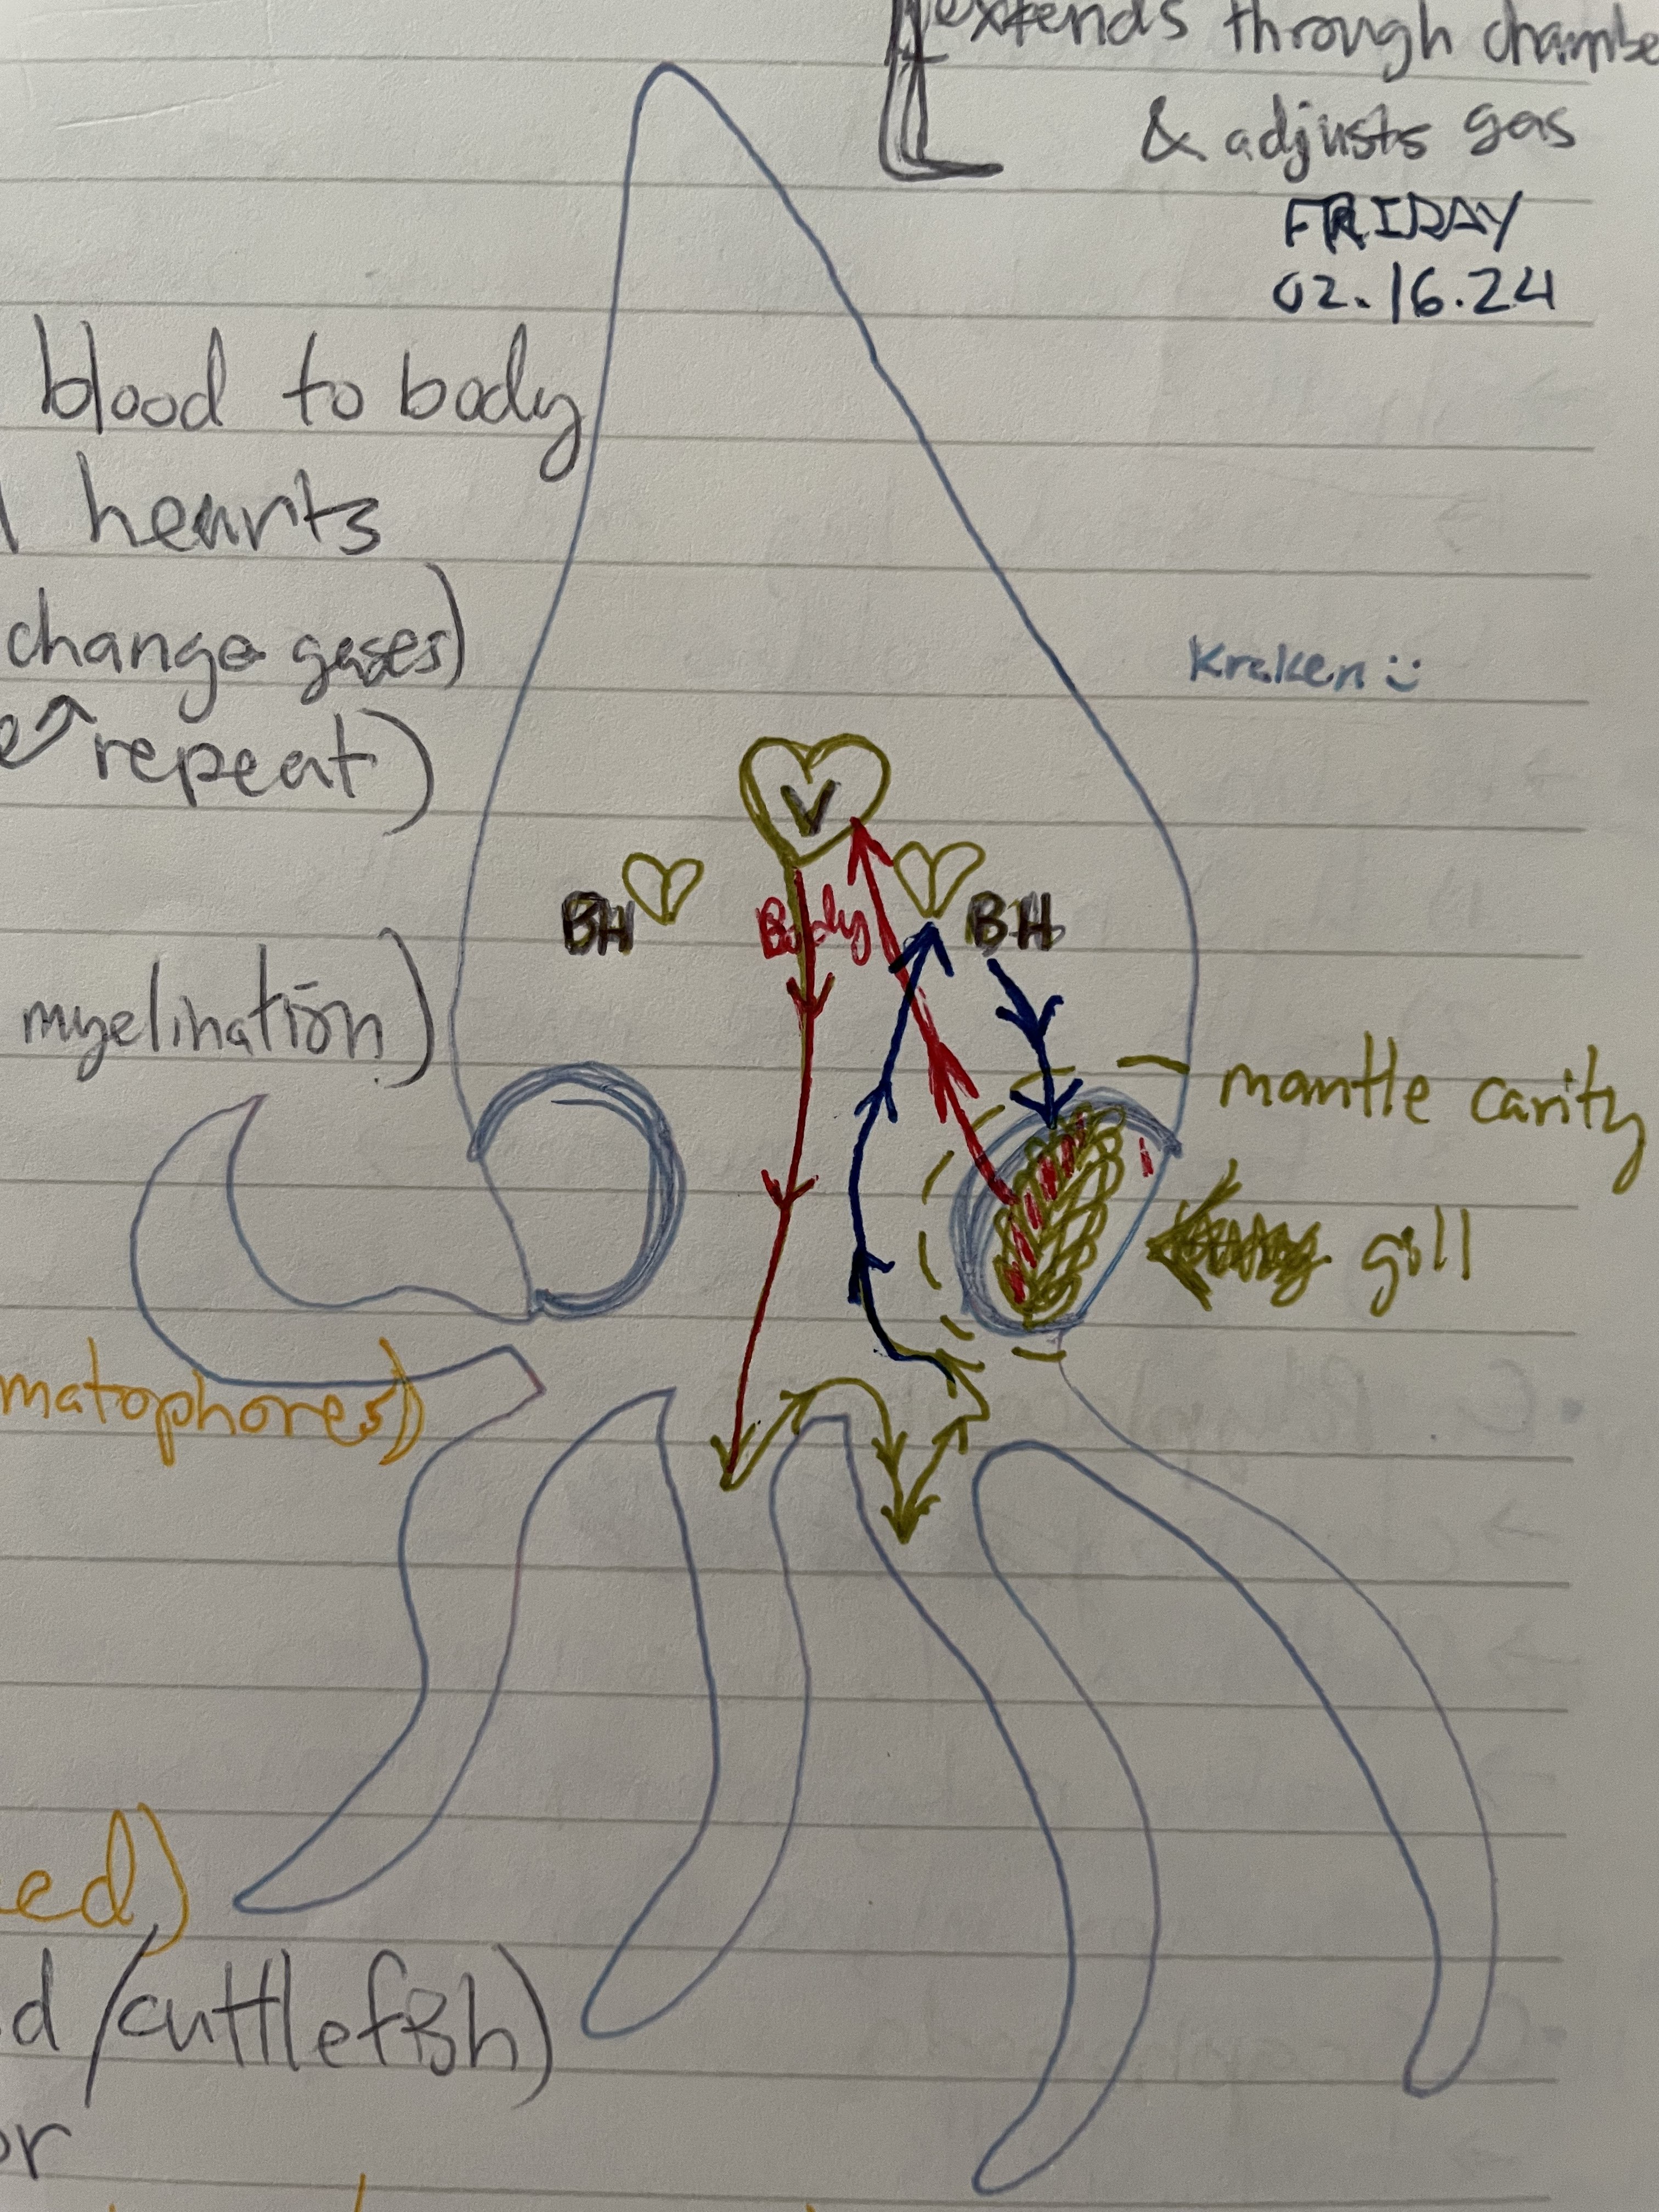 extends through chambe
& adjusts gas
FRIDAY
02.16.24
blood to body
hearts
change gases)
Kraken :)
repeat)
V
BH
Body
BH
myelination)
mantle cavity
gill
matophores)
ed)
d/cuttlefish)
or